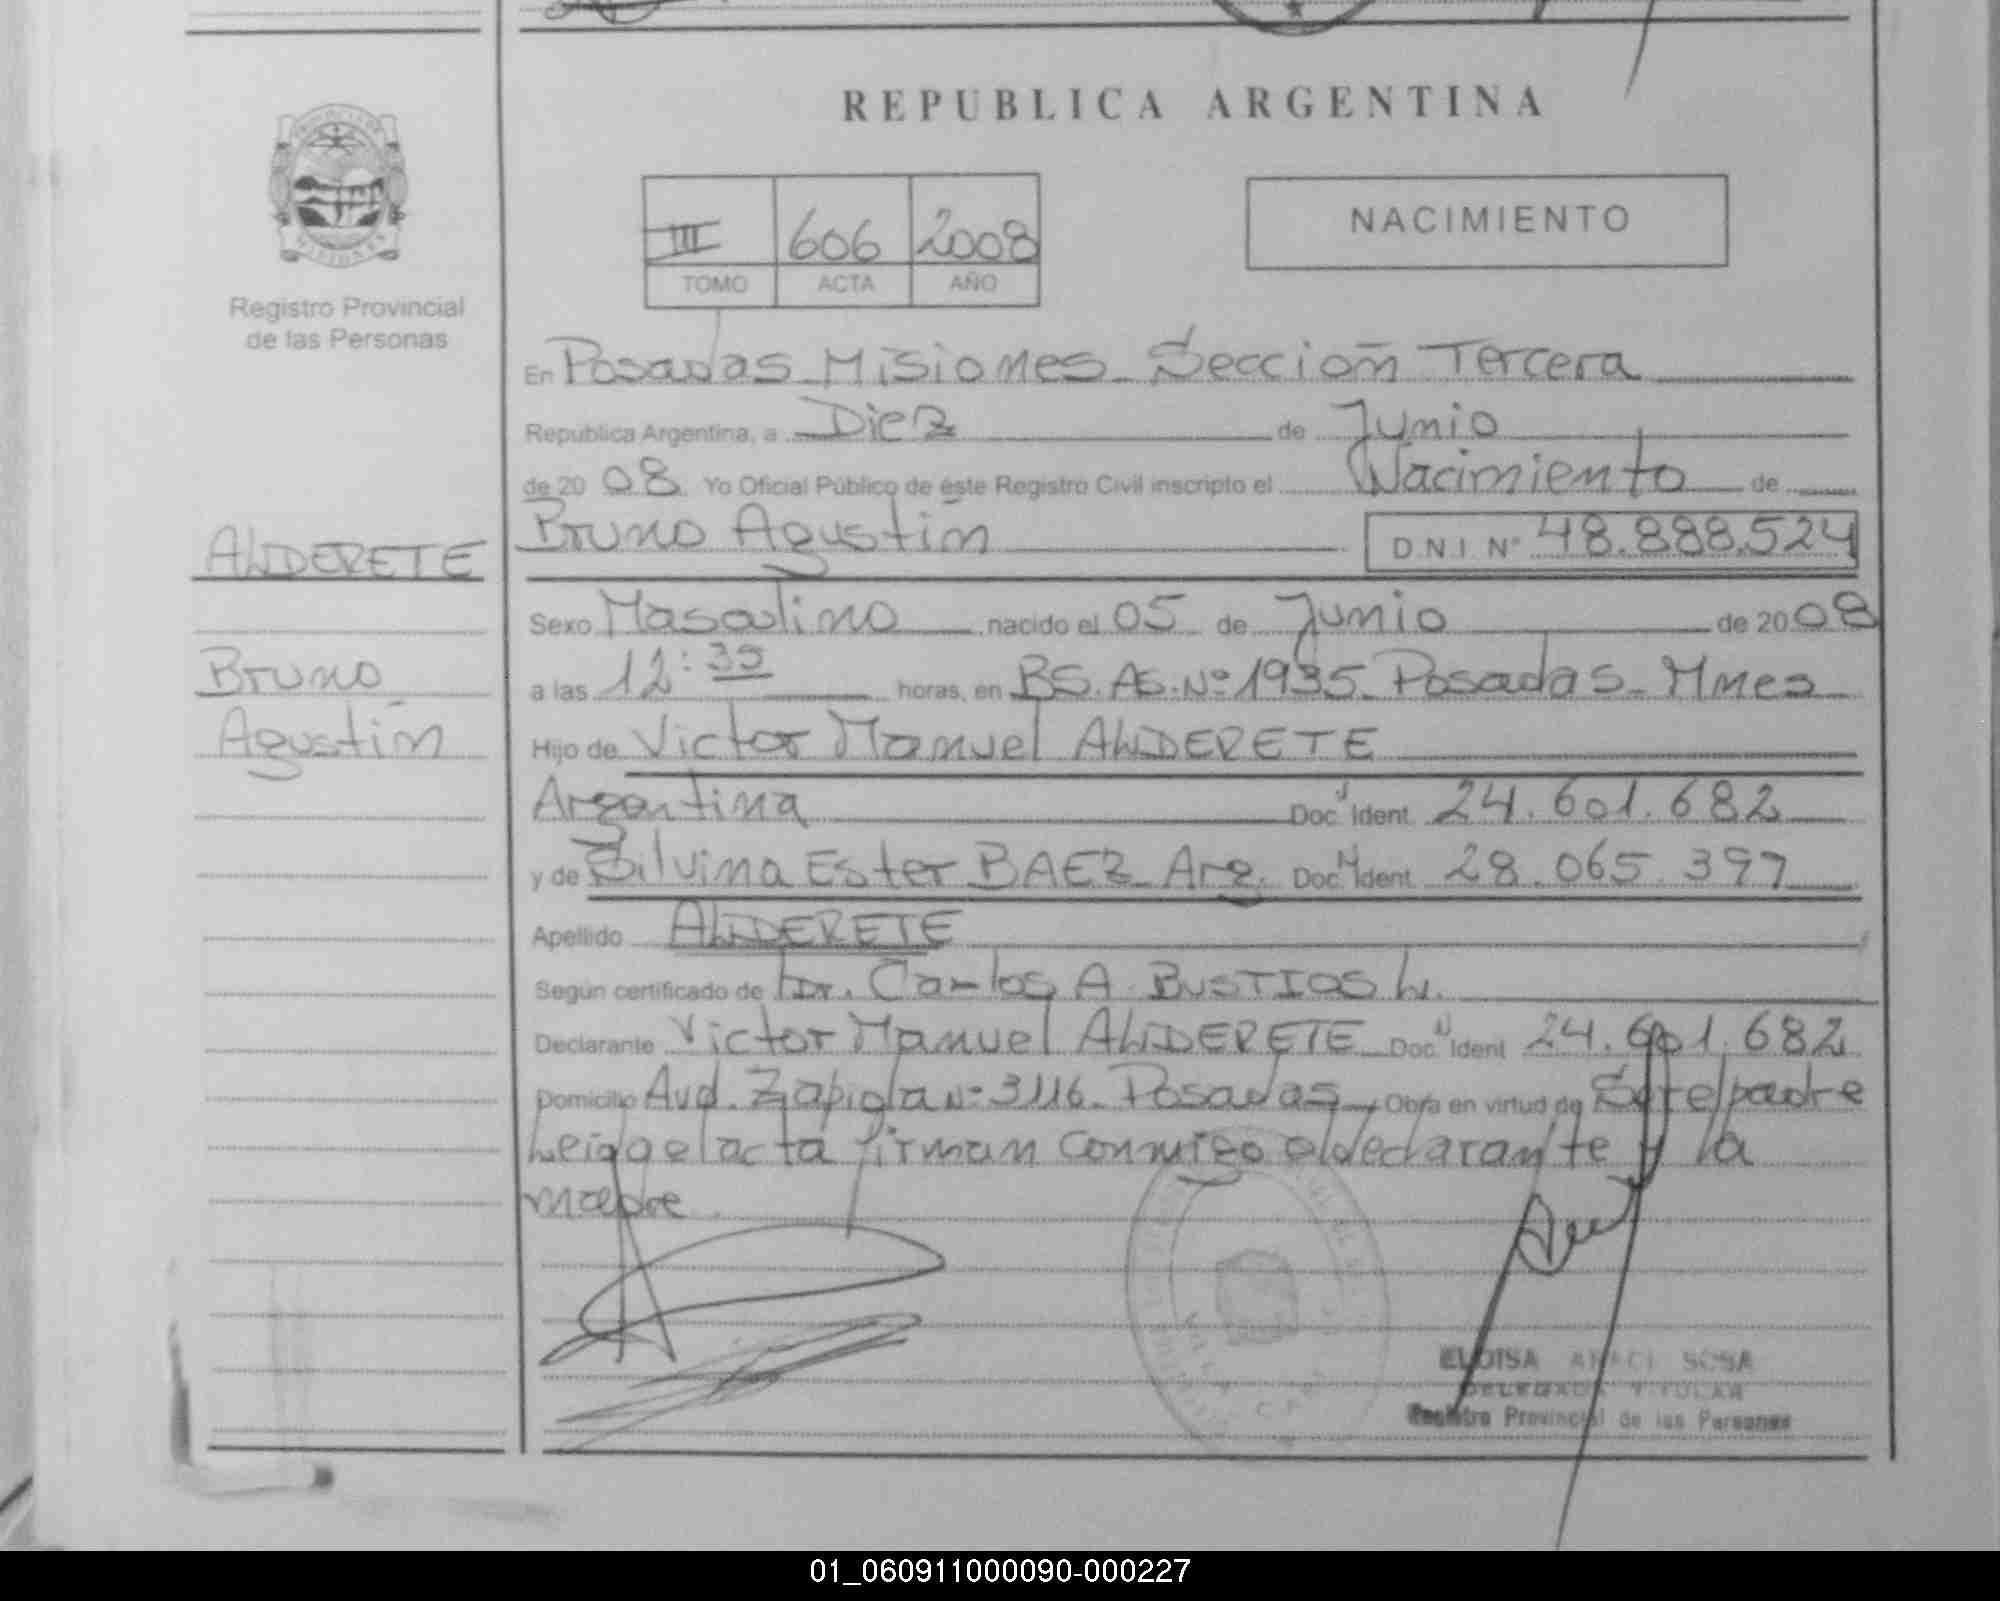 REPUBLICA ARGENTINA
III 606 2008
TOMO ACTA AÑO
NACIMIENTO
Registro Provincial
de las Personas
ALDERETE
Bruno
Agustín
En Posadas Misiones Sección Tercera
Republica Argentina, a Diez de Junio
de 20 08 Yo Oficial Público de éste Registro Civil inscripto el Nacimiento de
Bruno Agustín DNI Nº 48.888.524
Sexo Masculino nacido el 05 de Junio de 20 08
a las 12:35 horas, en BS. AS. Nº 1935 Posadas Mnes
Hijo de Victor Manuel ALDERETE
Argentina Doc. Ident 24.601.682
y de Silvina Ester BAEZ Arg. Doc. Ident 28.065.397
Apellido ALDERETE
Según certificado de Dr. Carlos A. BUSTIOS L.
Declarante Victor Manuel ALDERETE Doc. Ident 24.601.682
Domicilio Avd. Zapiola Nº 3116 Posadas, Obra en virtud de Ser el padre
Leida el acta firman conmigo el declarante y la
madre
ELOISA ARACI SOSA
DELEGADA TITULAR
Registro Provincial de las Personas
01_060911000090-000227